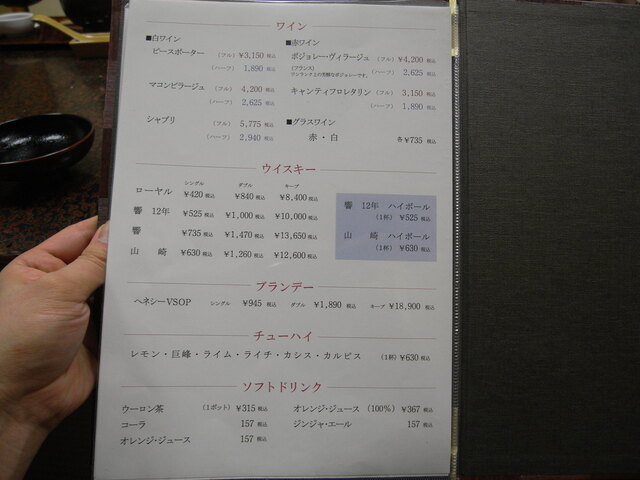 ワイン
■白ワイン
ピースポーター (フル) ¥3,150 税込
(ハーフ) 1,890 税込
マコンビラージュ (フル) 4,200 税込
(ハーフ) 2,625 税込
シャブリ (フル) 5,775 税込
(ハーフ) 2,940 税込
■赤ワイン
ボジョレー・ヴィラージュ (フル) ¥4,200 税込
(フランス)
ワンランク上の芳醇なボジョレーです。 (ハーフ) 2,625 税込
キャンティフロレタリン (フル) 3,150 税込
(ハーフ) 1,890 税込
■グラスワイン
赤・白 各¥735 税込
ウイスキー
シングル ダブル キープ
ローヤル ¥420 税込 ¥840 税込 ¥8,400 税込
響 12年 ¥525 税込 ¥1,000 税込 ¥10,000 税込
響 ¥735 税込 ¥1,470 税込 ¥13,650 税込
山崎 ¥630 税込 ¥1,260 税込 ¥12,600 税込
響 12年 ハイボール
(1杯) ¥525 税込
山崎 ハイボール
(1杯) ¥630 税込
ブランデー
ヘネシーVSOP シングル ¥945 税込 ダブル ¥1,890 税込 キープ ¥18,900 税込
チューハイ
レモン・巨峰・ライム・ライチ・カシス・カルピス (1杯) ¥630 税込
ソフトドリンク
ウーロン茶 (1ポット) ¥315 税込
コーラ 157 税込
オレンジ・ジュース 157 税込
オレンジ・ジュース (100%) ¥367 税込
ジンジャ・エール 157 税込